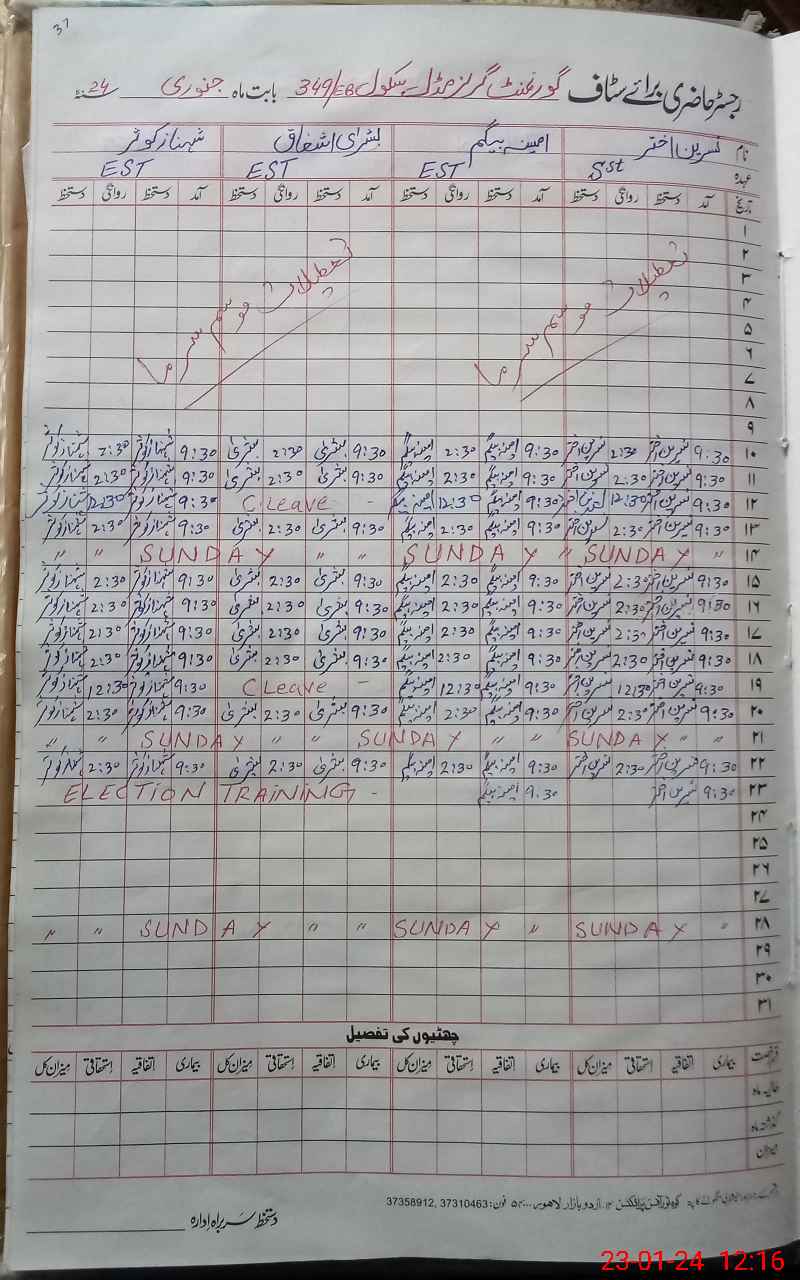 37
رجسٹر حاضری برائے سٹاف گورنمنٹ گرلز مڈل سکول 349/EB بابت ماہ جنوری سنہ 24
نام نسرین اختر امینہ بیگم بشریٰ اشفاق شہناز کوثر
عہدہ SST EST EST EST
تاریخ آمد دستخط روانگی دستخط آمد دستخط روانگی دستخط آمد دستخط روانگی دستخط آمد دستخط روانگی دستخط
۱
۲
۳
۴
۵
۶
۷
۸
تعطیلات موسم سرما تعطیلات موسم سرما
۹
۱۰ 9:30 نسرین اختر 2:30 نسرین اختر 9:30 امینہ بیگم 2:30 امینہ بیگم 9:30 بشریٰ 2:30 بشریٰ 9:30 شہناز کوثر 2:30 شہناز کوثر
۱۱ 9:30 نسرین اختر 2:30 نسرین اختر 9:30 امینہ بیگم 2:30 امینہ بیگم 9:30 بشریٰ 2:30 بشریٰ 9:30 شہناز کوثر 2:30 شہناز کوثر
۱۲ 9:30 نسرین اختر 12:30 نسرین اختر 9:30 امینہ بیگم 12:30 امینہ بیگم - C.Leave 9:30 شہناز کوثر 12:30 شہناز کوثر
۱۳ 9:30 نسرین اختر 2:30 نسرین اختر 9:30 امینہ بیگم 2:30 امینہ بیگم 9:30 بشریٰ 2:30 بشریٰ 9:30 شہناز کوثر 2:30 شہناز کوثر
۱۴ " SUNDAY " SUNDAY " " SUNDAY " "
۱۵ 9:30 نسرین اختر 2:30 نسرین اختر 9:30 امینہ بیگم 2:30 امینہ بیگم 9:30 بشریٰ 2:30 بشریٰ 9:30 شہناز کوثر 2:30 شہناز کوثر
۱۶ 9:30 نسرین اختر 2:30 نسرین اختر 9:30 امینہ بیگم 2:30 امینہ بیگم 9:30 بشریٰ 2:30 بشریٰ 9:30 شہناز کوثر 2:30 شہناز کوثر
۱۷ 9:30 نسرین اختر 2:30 نسرین اختر 9:30 امینہ بیگم 2:30 امینہ بیگم 9:30 بشریٰ 2:30 بشریٰ 9:30 شہناز کوثر 2:30 شہناز کوثر
۱۸ 9:30 نسرین اختر 2:30 نسرین اختر 9:30 امینہ بیگم 2:30 امینہ بیگم 9:30 بشریٰ 2:30 بشریٰ 9:30 شہناز کوثر 2:30 شہناز کوثر
۱۹ 9:30 نسرین اختر 12:30 نسرین اختر 9:30 امینہ بیگم 12:30 امینہ بیگم - C Leave 9:30 شہناز کوثر 12:30 شہناز کوثر
۲۰ 9:30 نسرین اختر 2:30 نسرین اختر 9:30 امینہ بیگم 2:30 امینہ بیگم 9:30 بشریٰ 2:30 بشریٰ 9:30 شہناز کوثر 2:30 شہناز کوثر
۲۱ " " SUNDAY " " SUNDAY " SUNDAY " "
۲۲ 9:30 نسرین اختر 2:30 نسرین اختر 9:30 امینہ بیگم 2:30 امینہ بیگم 9:30 بشریٰ 2:30 بشریٰ 9:30 شہناز کوثر 2:30 شہناز کوثر
۲۳ 9:30 نسرین اختر 9:30 امینہ بیگم ELECTION TRAINING -
۲۴
۲۵
۲۶
۲۷
۲۸ " SUNDAY " SUNDAY " " SUNDAY " "
۲۹
۳۰
۳۱
چھٹیوں کی تفصیل
رخصت بیماری اتفاقیہ استحقاقی میزان کل بیماری اتفاقیہ استحقاقی میزان کل بیماری اتفاقیہ استحقاقی میزان کل بیماری اتفاقیہ استحقاقی میزان کل
حالیہ ماہ
گذشتہ ماہ
میزان
اردو بازار لاہور فون: 37310463, 37358912
دستخط سربراہ ادارہ
23-01-24 12:16